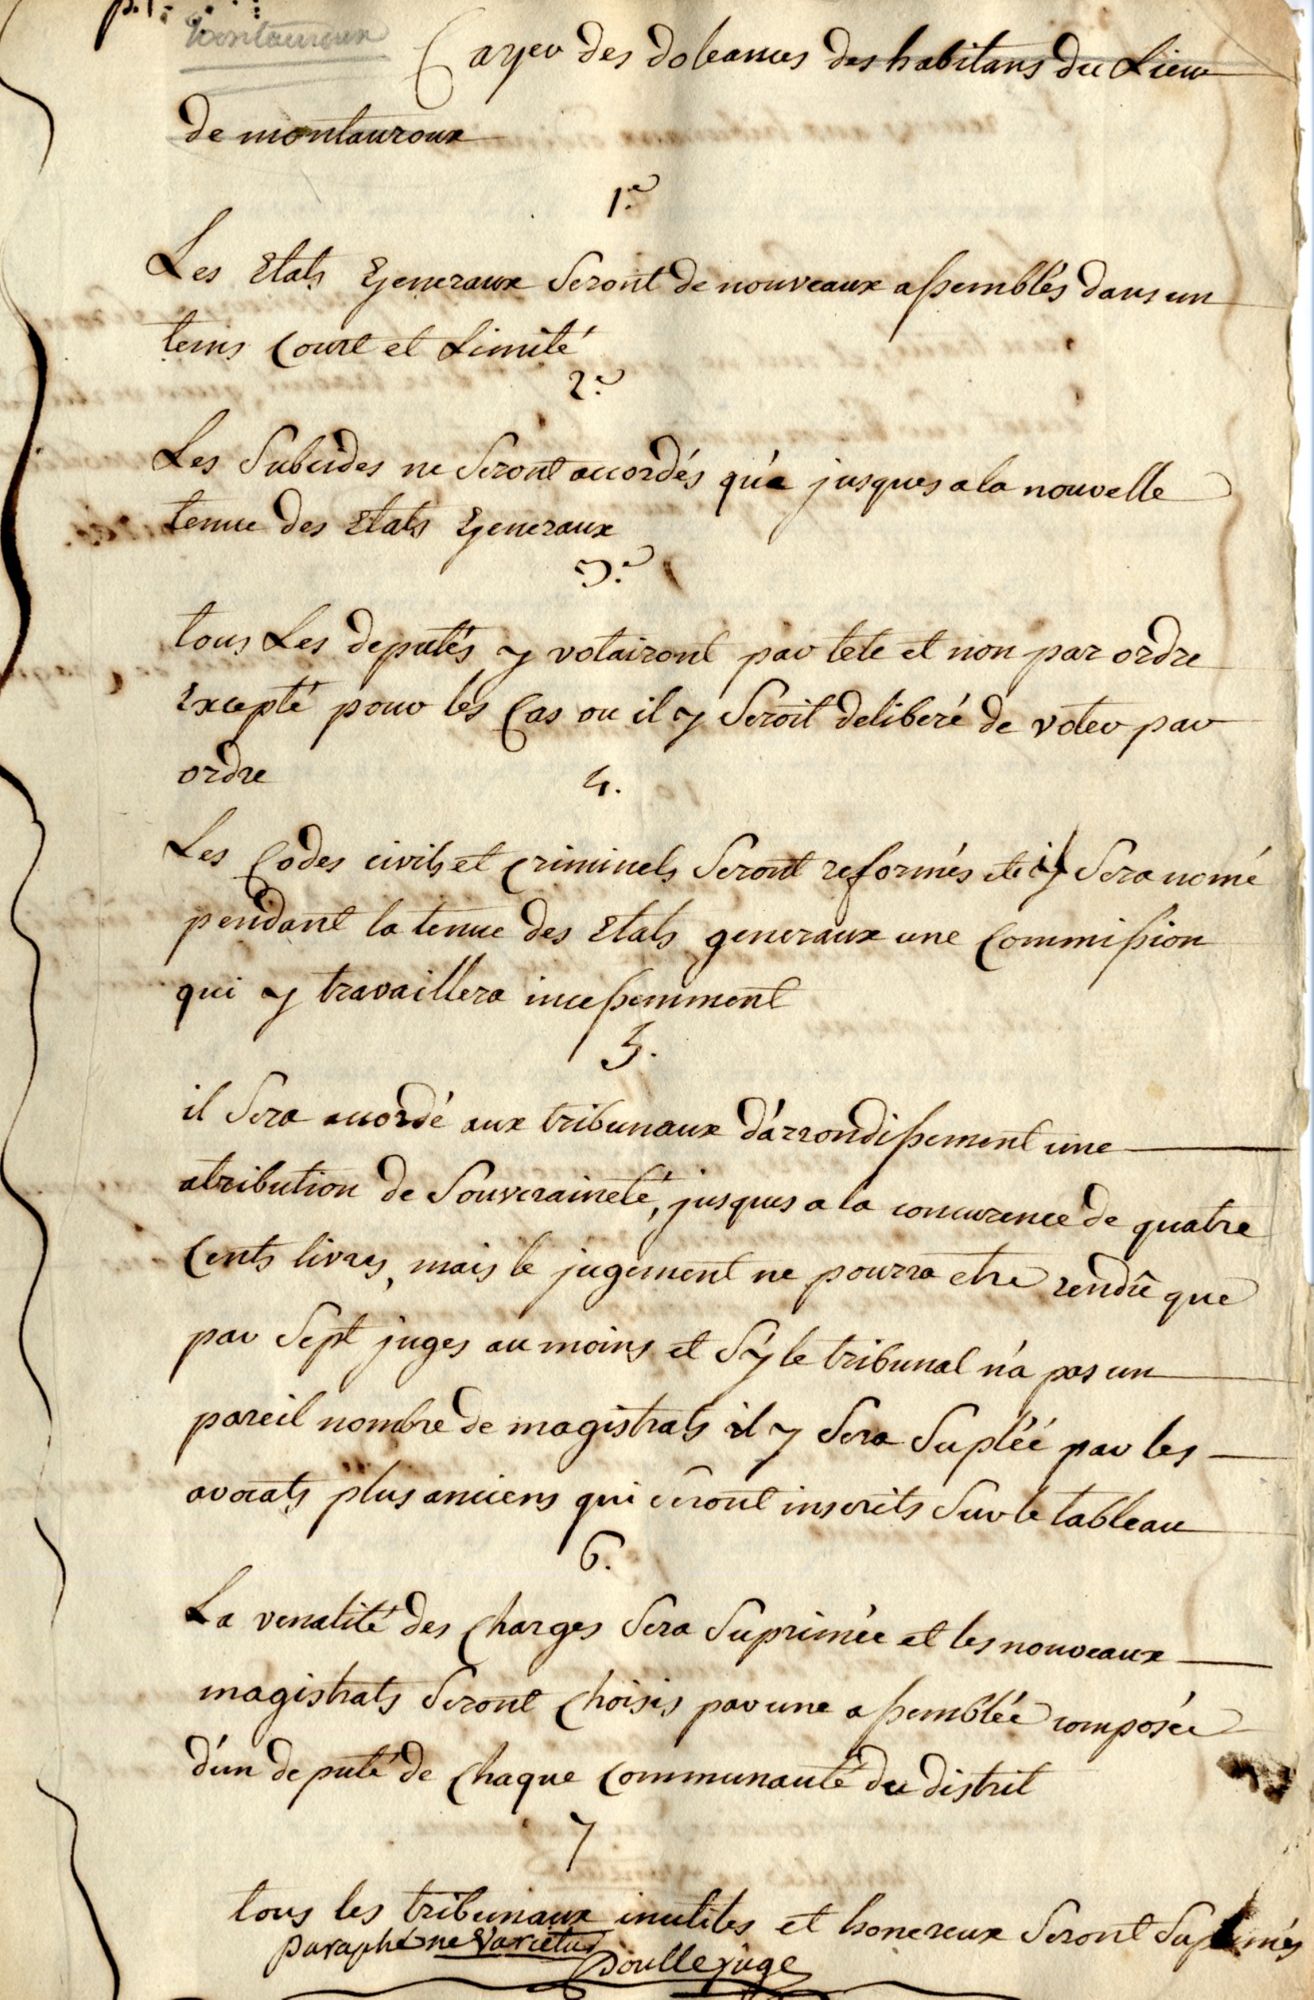 p. 1
Montauroux
Cayer des doleances des habitans du Lieu
de montauroux
1.e
Les Etats Generaux Seront de nouveaux assemblés dans un
tems Court et Limité
2.e
Les Subcides ne Seront accordés qu'a jusques a la nouvelle
tenue des Etats Generaux
3.e
tous Les deputés y votairont par tete et non par ordre
Excepté pour les Cas ou il y Seroit deliberé de voter par
ordre
4.
Les Codes civils et Criminels Seront reformés et il Sera nomé
pendant la tenue des Etats generaux une Commission
qui y travaillera incessemment
5.
il Sera accordé aux tribunaux d'arrondissement une
atribution de Souveraineté, jusques a la concurence de quatre
Cents livres, mais le jugement ne pourra etre rendû que
par Sept juges au moins et S'y le tribunal n'a pas un
pareil nombre de magistrats il y Sera Supléé par les
avocats plus anciens qui Seront inscrits Sur le tableau
6.
La venalité des Charges Sera Suprimée et les nouveaux
magistrats Seront Choisis par une assemblée composée
d'un deputé de Chaque Communauté du distrit
7
tous les tribunaux inutiles et honereux Seront Suprimés
paraphé ne varietur
Doulle juge